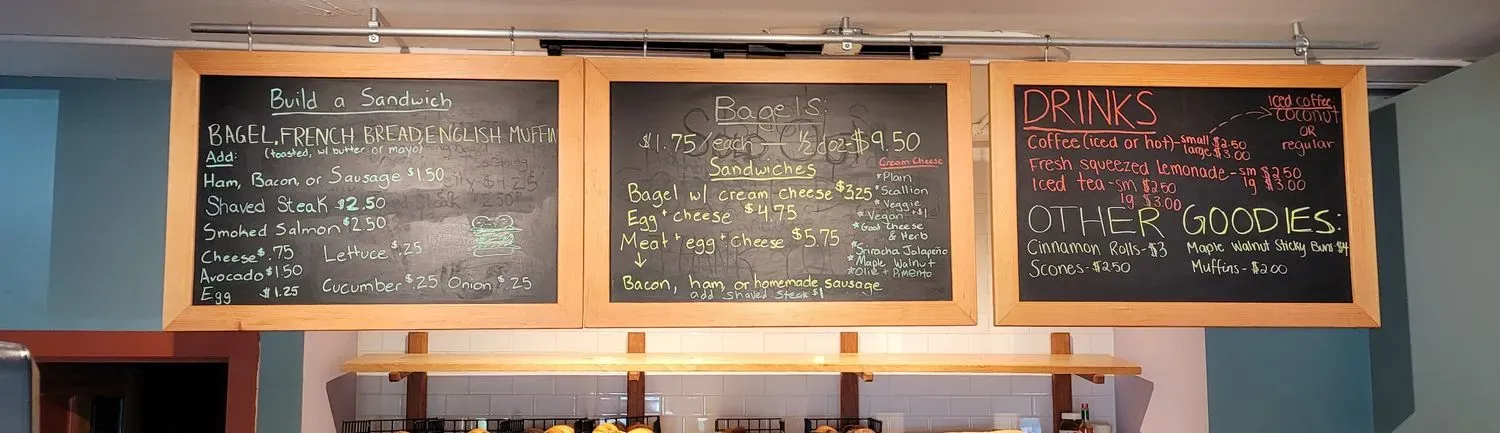 Build a Sandwich
BAGEL, FRENCH BREAD, ENGLISH MUFFIN
(toasted, w/ butter or mayo)
Add:
Ham, Bacon, or Sausage $1.50
Shaved Steak $2.50
Smoked Salmon $2.50
Cheese $.75 Lettuce $.25
Avocado $1.50
Egg $1.25 Cucumber $.25 Onion $.25
Bagels:
$1.75/each — ½ doz - $9.50
Sandwiches
Bagel w/ cream cheese $3.25
Egg + cheese $4.75
Meat + egg + cheese $5.75
Bacon, ham, or homemade sausage
add shaved steak $1
Cream Cheese
*Plain
*Scallion
*Veggie
*Vegan - +$1
*Goat Cheese
& Herb
*Sriracha Jalapeño
*Maple Walnut
*Olive + Pimento
DRINKS
Coffee (iced or hot) - small $2.50
large $3.00
iced coffee
coconut
OR
regular
Fresh squeezed Lemonade - sm $2.50
lg $3.00
Iced tea - sm $2.50
lg $3.00
OTHER GOODIES:
Cinnamon Rolls - $3 Maple Walnut Sticky Buns - $4
Scones - $2.50 Muffins - $2.00